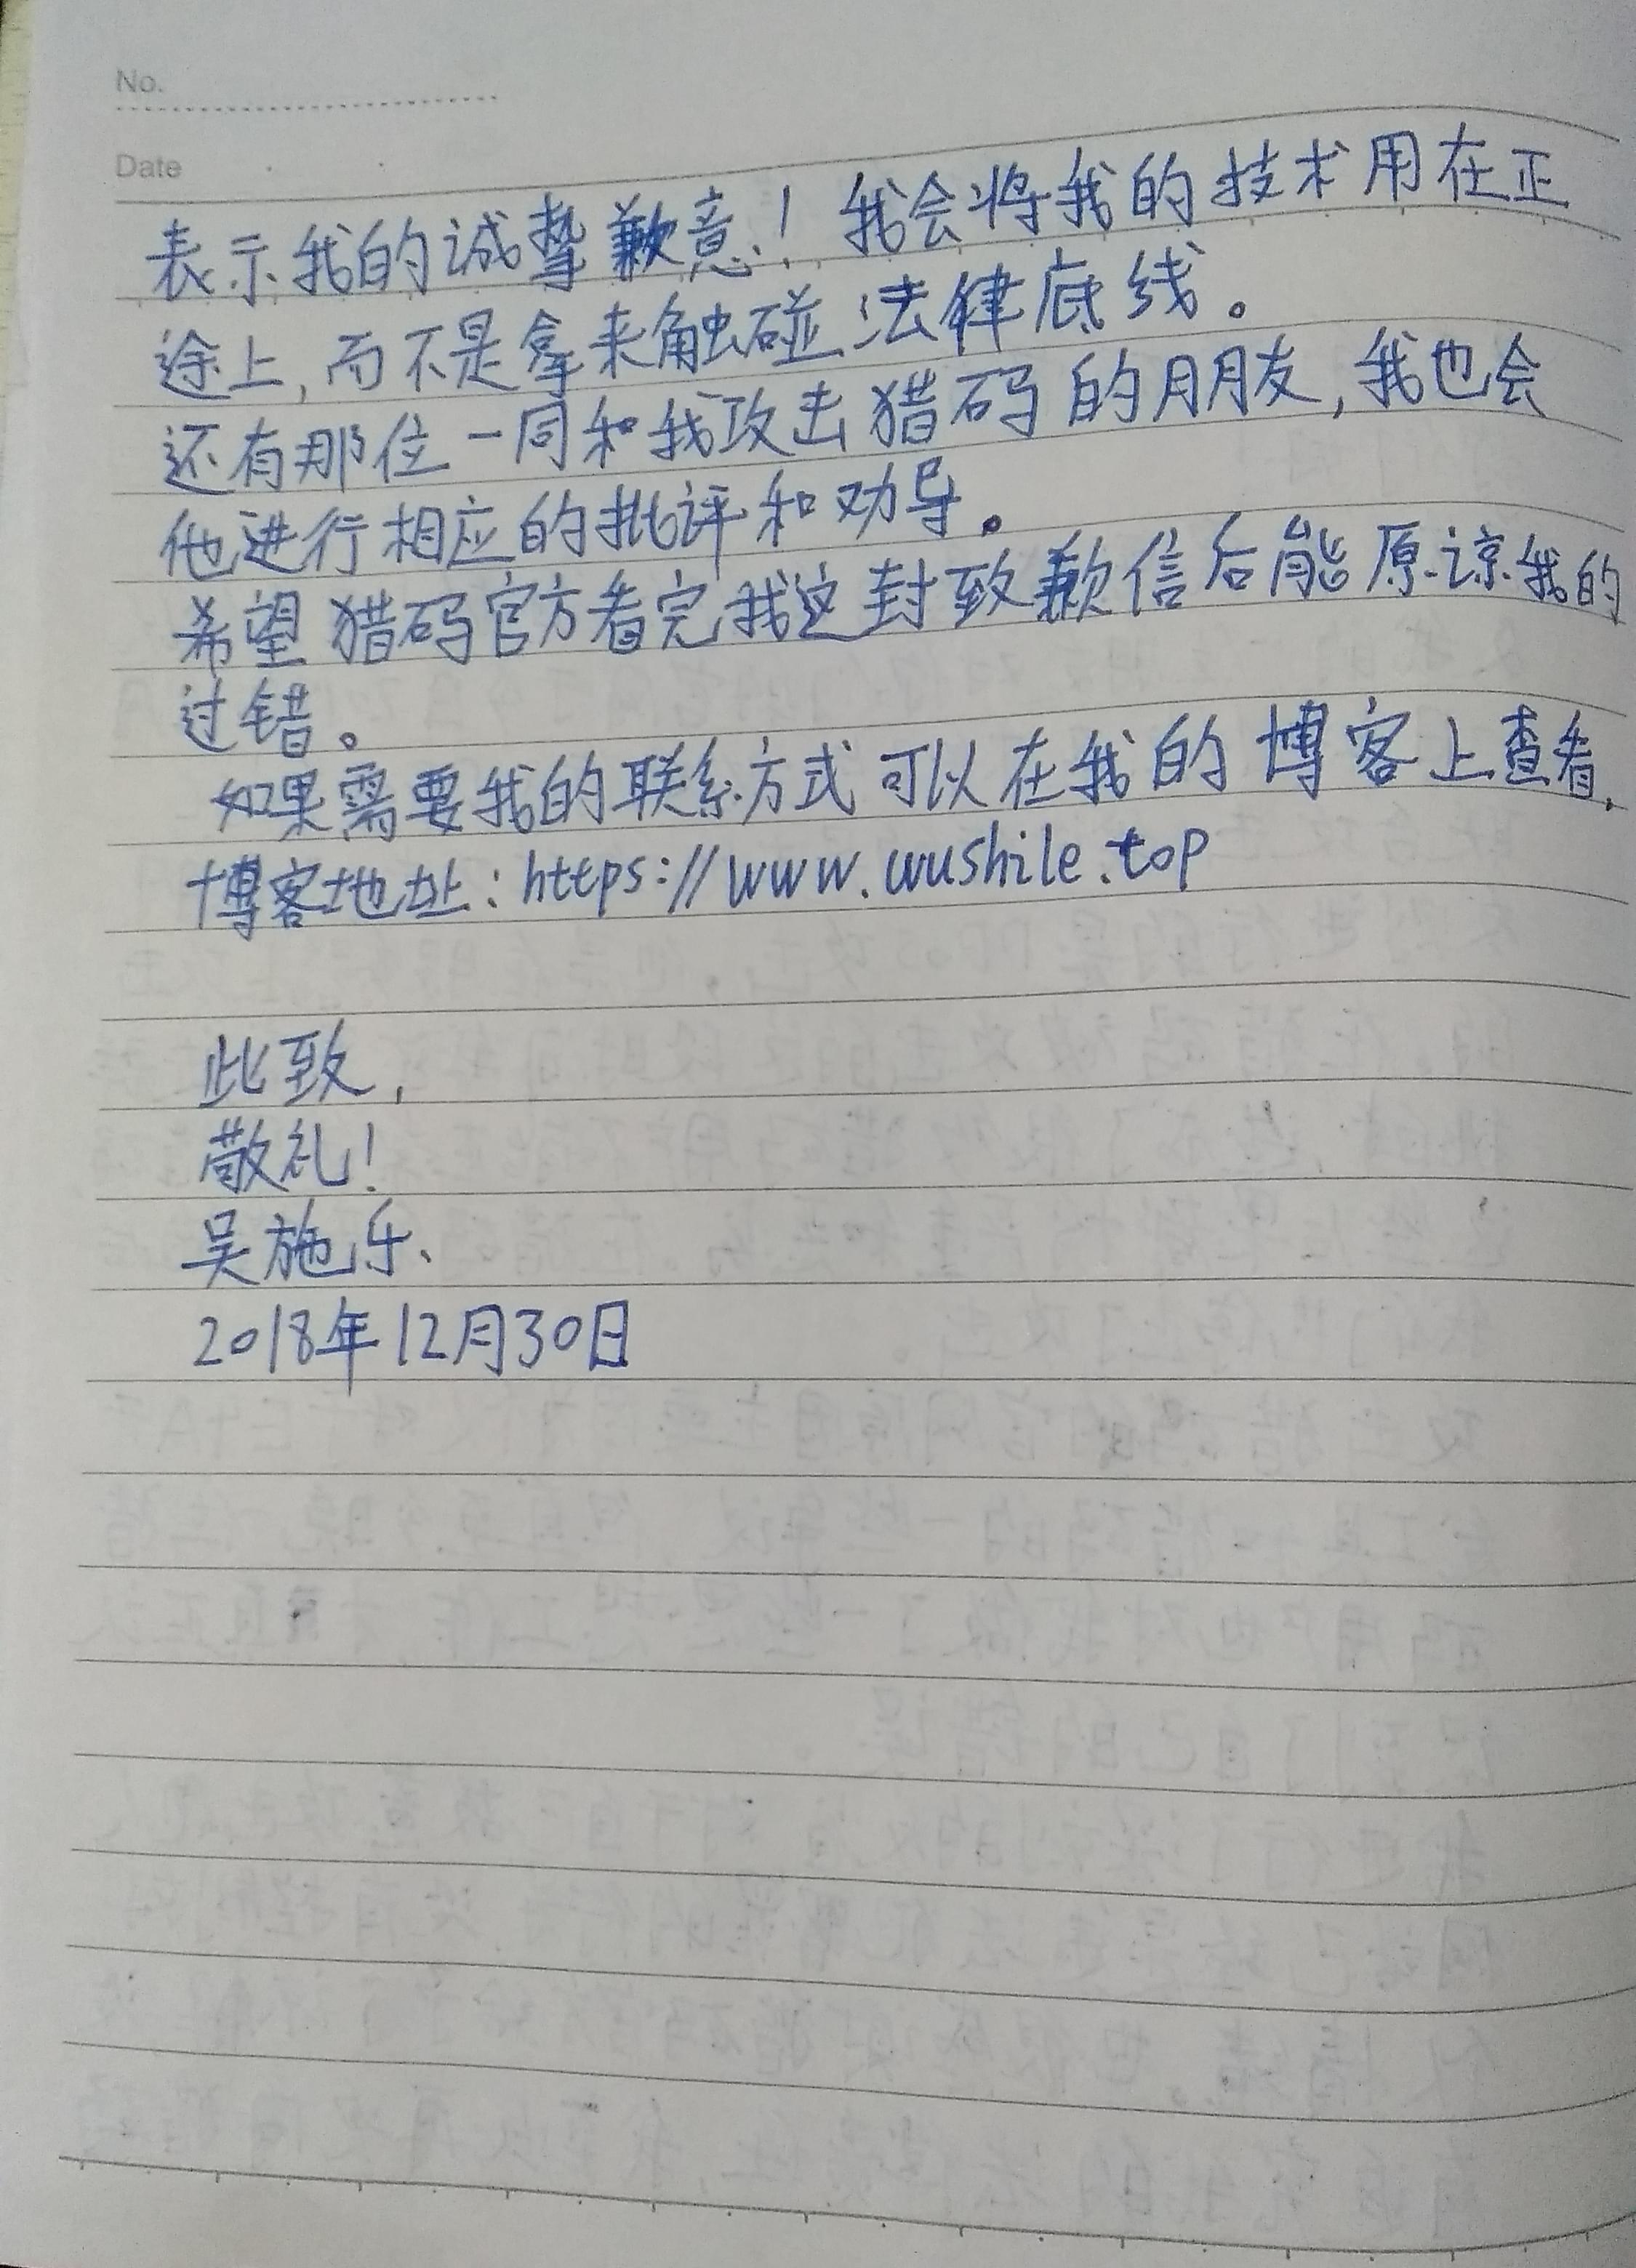 No.
Date
表示我的诚挚歉意！我会将我的技术用在正
途上，而不是拿来触碰法律底线。
还有那位一同和我攻击猎码的朋友，我也会
他进行相应的批评和劝导。
希望猎码官方看完我这封致歉信后能原谅我的
过错。
如果需要我的联系方式可以在我的博客上查看，
博客地址：https://www.wushile.top
此致，
敬礼！
吴施乐、
2018年12月30日